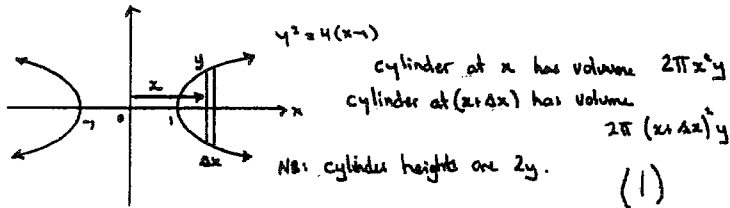 y² = 4(x-1)
cylinder at x has volume 2πx²y
cylinder at (x+Δx) has volume
2π (x+Δx)² y
NB: cylinder heights are 2y.
(1)
y
x
x
-1
0
1
Δx